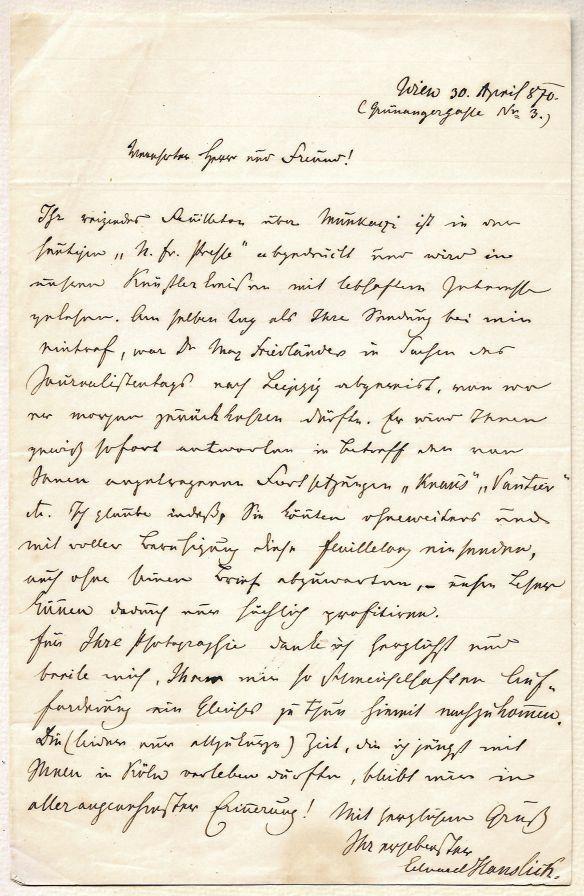 Wien 30. April 870.
(Grünangergasse Nr 3.)
Verehrter Herr und Freund!
Ihr reizendes Feuilleton über Munkaczi ist in der
heutigen „N. fr. Presse" abgedruckt und wird in
unseren Künstlerkreisen mit lebhaftem Interesse
gelesen. Am selben Tag als Ihre Sendung bei mir
eintraf, war Dr Max Friedländer in Sachen des
Journalistentags nach Leipzig abgereist, von wo
er morgen zurückkehren dürfte. Er wird Ihnen
gewiß sofort antworten in Betreff der von
Ihnen angetragenen Fortsetzungen „Knaus", „Vautier"
etc. Ich glaube indeß, Sie könten ohneweiters und
mit voller Beruhigung diese Feuilletons einsenden,
auch ohne seinen Brief abzuwarten, – unsre Leser
können dadurch nur höchlich profitiren.
Für Ihre Photographie danke ich herzlichst und
beeile mich, Ihrer mir so schmeichelhaften Auf-
forderung ein Gleiches zu thun hiemit nachzukommen.
Die (leider nur allzukurze) Zeit, die ich jüngst mit
Ihnen in Köln verleben durfte, bleibt mir in
allerangenehmster Erinerung! Mit herzlichem Gruß
Ihr ergebenster
Eduard Hanslick.